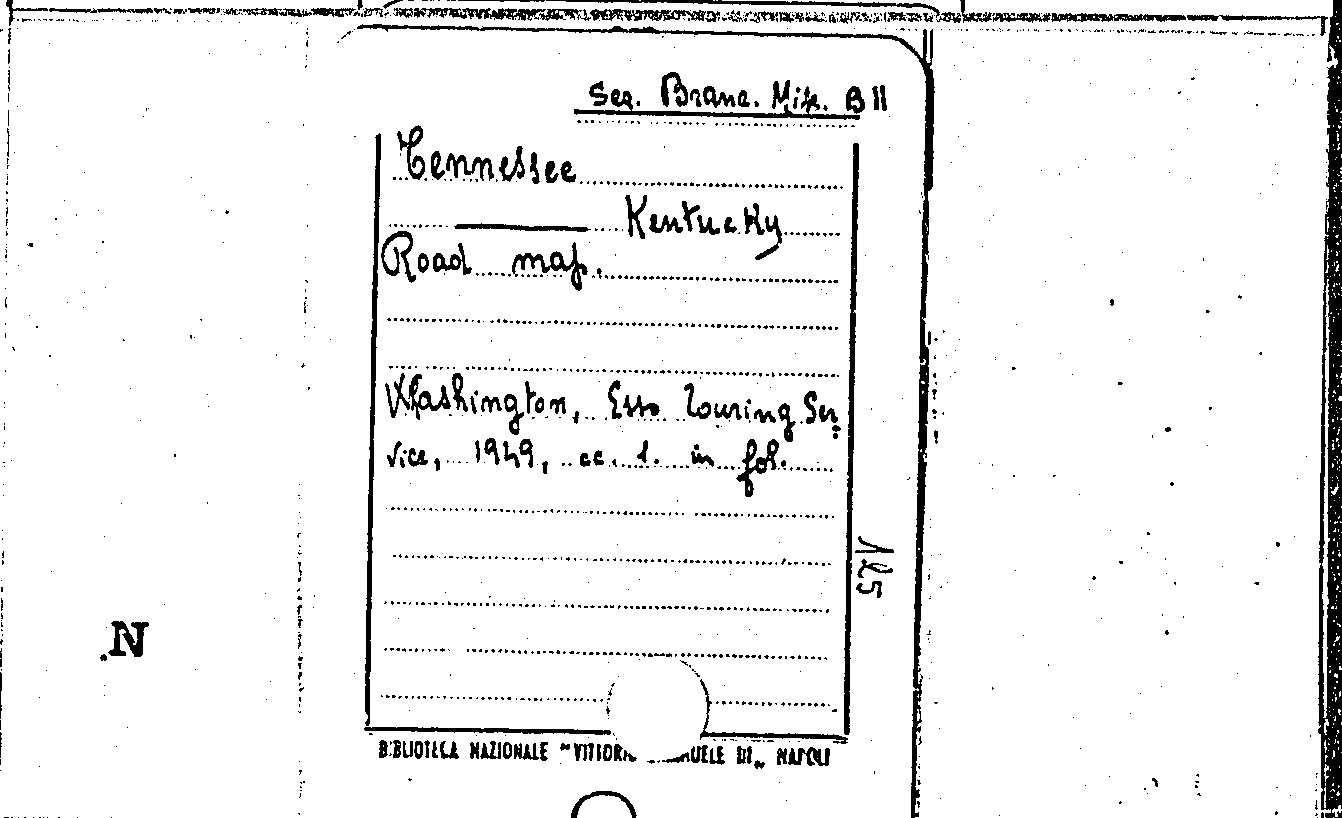 Sez. Branc. Mitr. B 11
Tennessee
Kentucky
Road map.
Washington, Esso Touring Ser
vice, 1949, cc. 1. in fol.
125
N
BIBLIOTECA NAZIONALE "VITTORIO UELE III„ NAPOLI